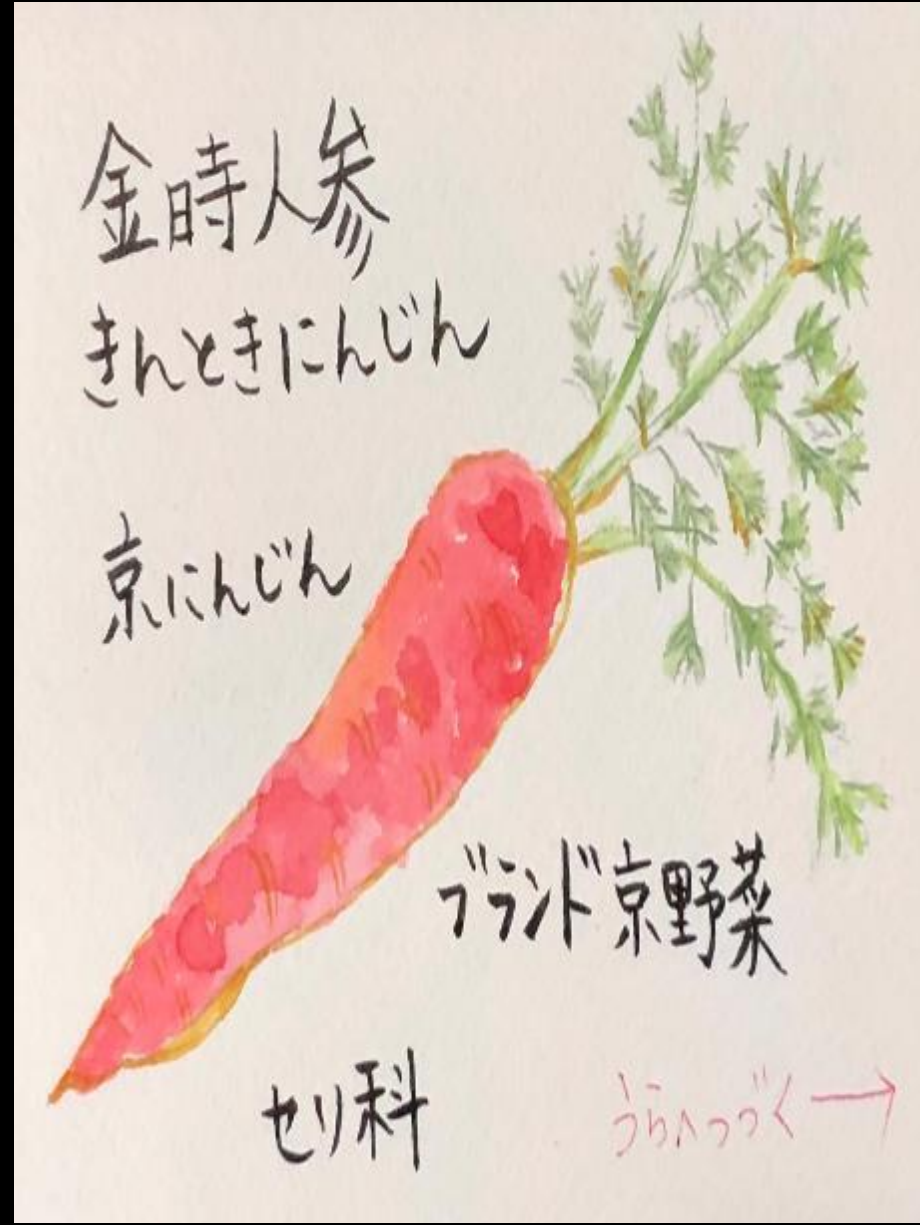 金時人参
きんときにんじん
京にんじん
ブランド京野菜
セリ科
うらへつづく→